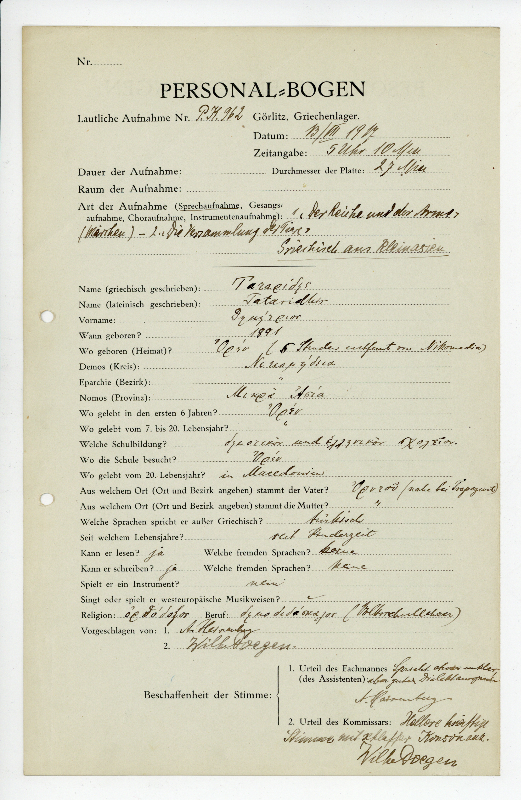 Nr.
PERSONAL=BOGEN
Lautliche Aufnahme Nr. P.K. 962 Görlitz, Griechenlager.
Datum: 13/VII 1917
Zeitangabe: 5 Uhr 10 Min
Dauer der Aufnahme: Durchmesser der Platte: 27
Raum der Aufnahme:
Art der Aufnahme (Sprechaufnahme, Gesangs-
aufnahme, Choraufnahme, Instrumentenaufnahme): 1. „Der Reiche und der Arme"
(Märchen) – 2. „Die Versammlung der Tiere"
Griechisch aus Kleinasien
Name (griechisch geschrieben): Ταταρίδης
Name (lateinisch geschrieben): Tataridhis
Vorname: Δημήτριος
Wann geboren? 1891
Wo geboren (Heimat)? (5 Stunden entfernt von Nikomedia)
Demos (Kreis): Νικομήδεια
Eparchie (Bezirk): "
Nomos (Provinz): Μικρὰ Ἀσία
Wo gelebt in den ersten 6 Jahren?
Wo gelebt vom 7. bis 20. Lebensjahr? "
Welche Schulbildung? und ἑλληνικὸν σχολεῖον
Wo die Schule besucht?
Wo gelebt vom 20. Lebensjahr? in Macedonien
Aus welchem Ort (Ort und Bezirk angeben) stammt der Vater? (nahe bei Trapezunt)
Aus welchem Ort (Ort und Bezirk angeben) stammt die Mutter? "
Welche Sprachen spricht er außer Griechisch? türkisch
Seit welchem Lebensjahre? seit Kinderzeit
Kann er lesen? ja Welche fremden Sprachen? keine
Kann er schreiben? ja Welche fremden Sprachen? keine
Spielt er ein Instrument? nein
Singt oder spielt er westeuropäische Musikweisen?
Religion: ὀρθόδοξος Beruf: δημοδιδάσκαλος (Volksschullehrer)
Vorgeschlagen von: 1. A. Heisenberg
2. Wilh. Doegen.
Beschaffenheit der Stimme:
1. Urteil des Fachmannes
(des Assistenten)
A. Heisenberg
2. Urteil des Kommissars: Hellere kräftige
Stimme mit Konsonanz.
Wilh. Doegen